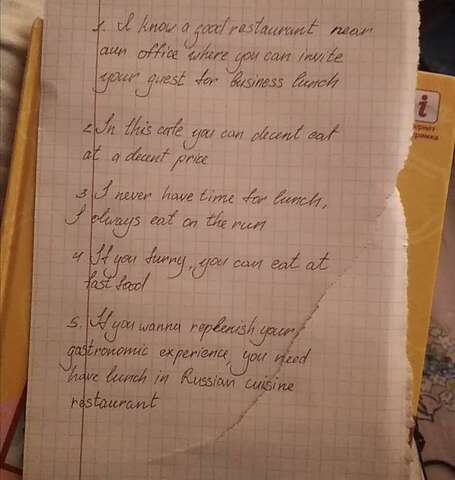 1. I know a good restaurant near
aun office where you can invite
your guest for business lunch
2. In this cafe you can decent eat
at a decent price
3. I never have time for lunch,
I always eat on the run
4. If you furry, you can eat at
fast food
5. If you wanna replenish your
gastronomic experience, you need
have lunch in Russian cuisine
restaurant
i